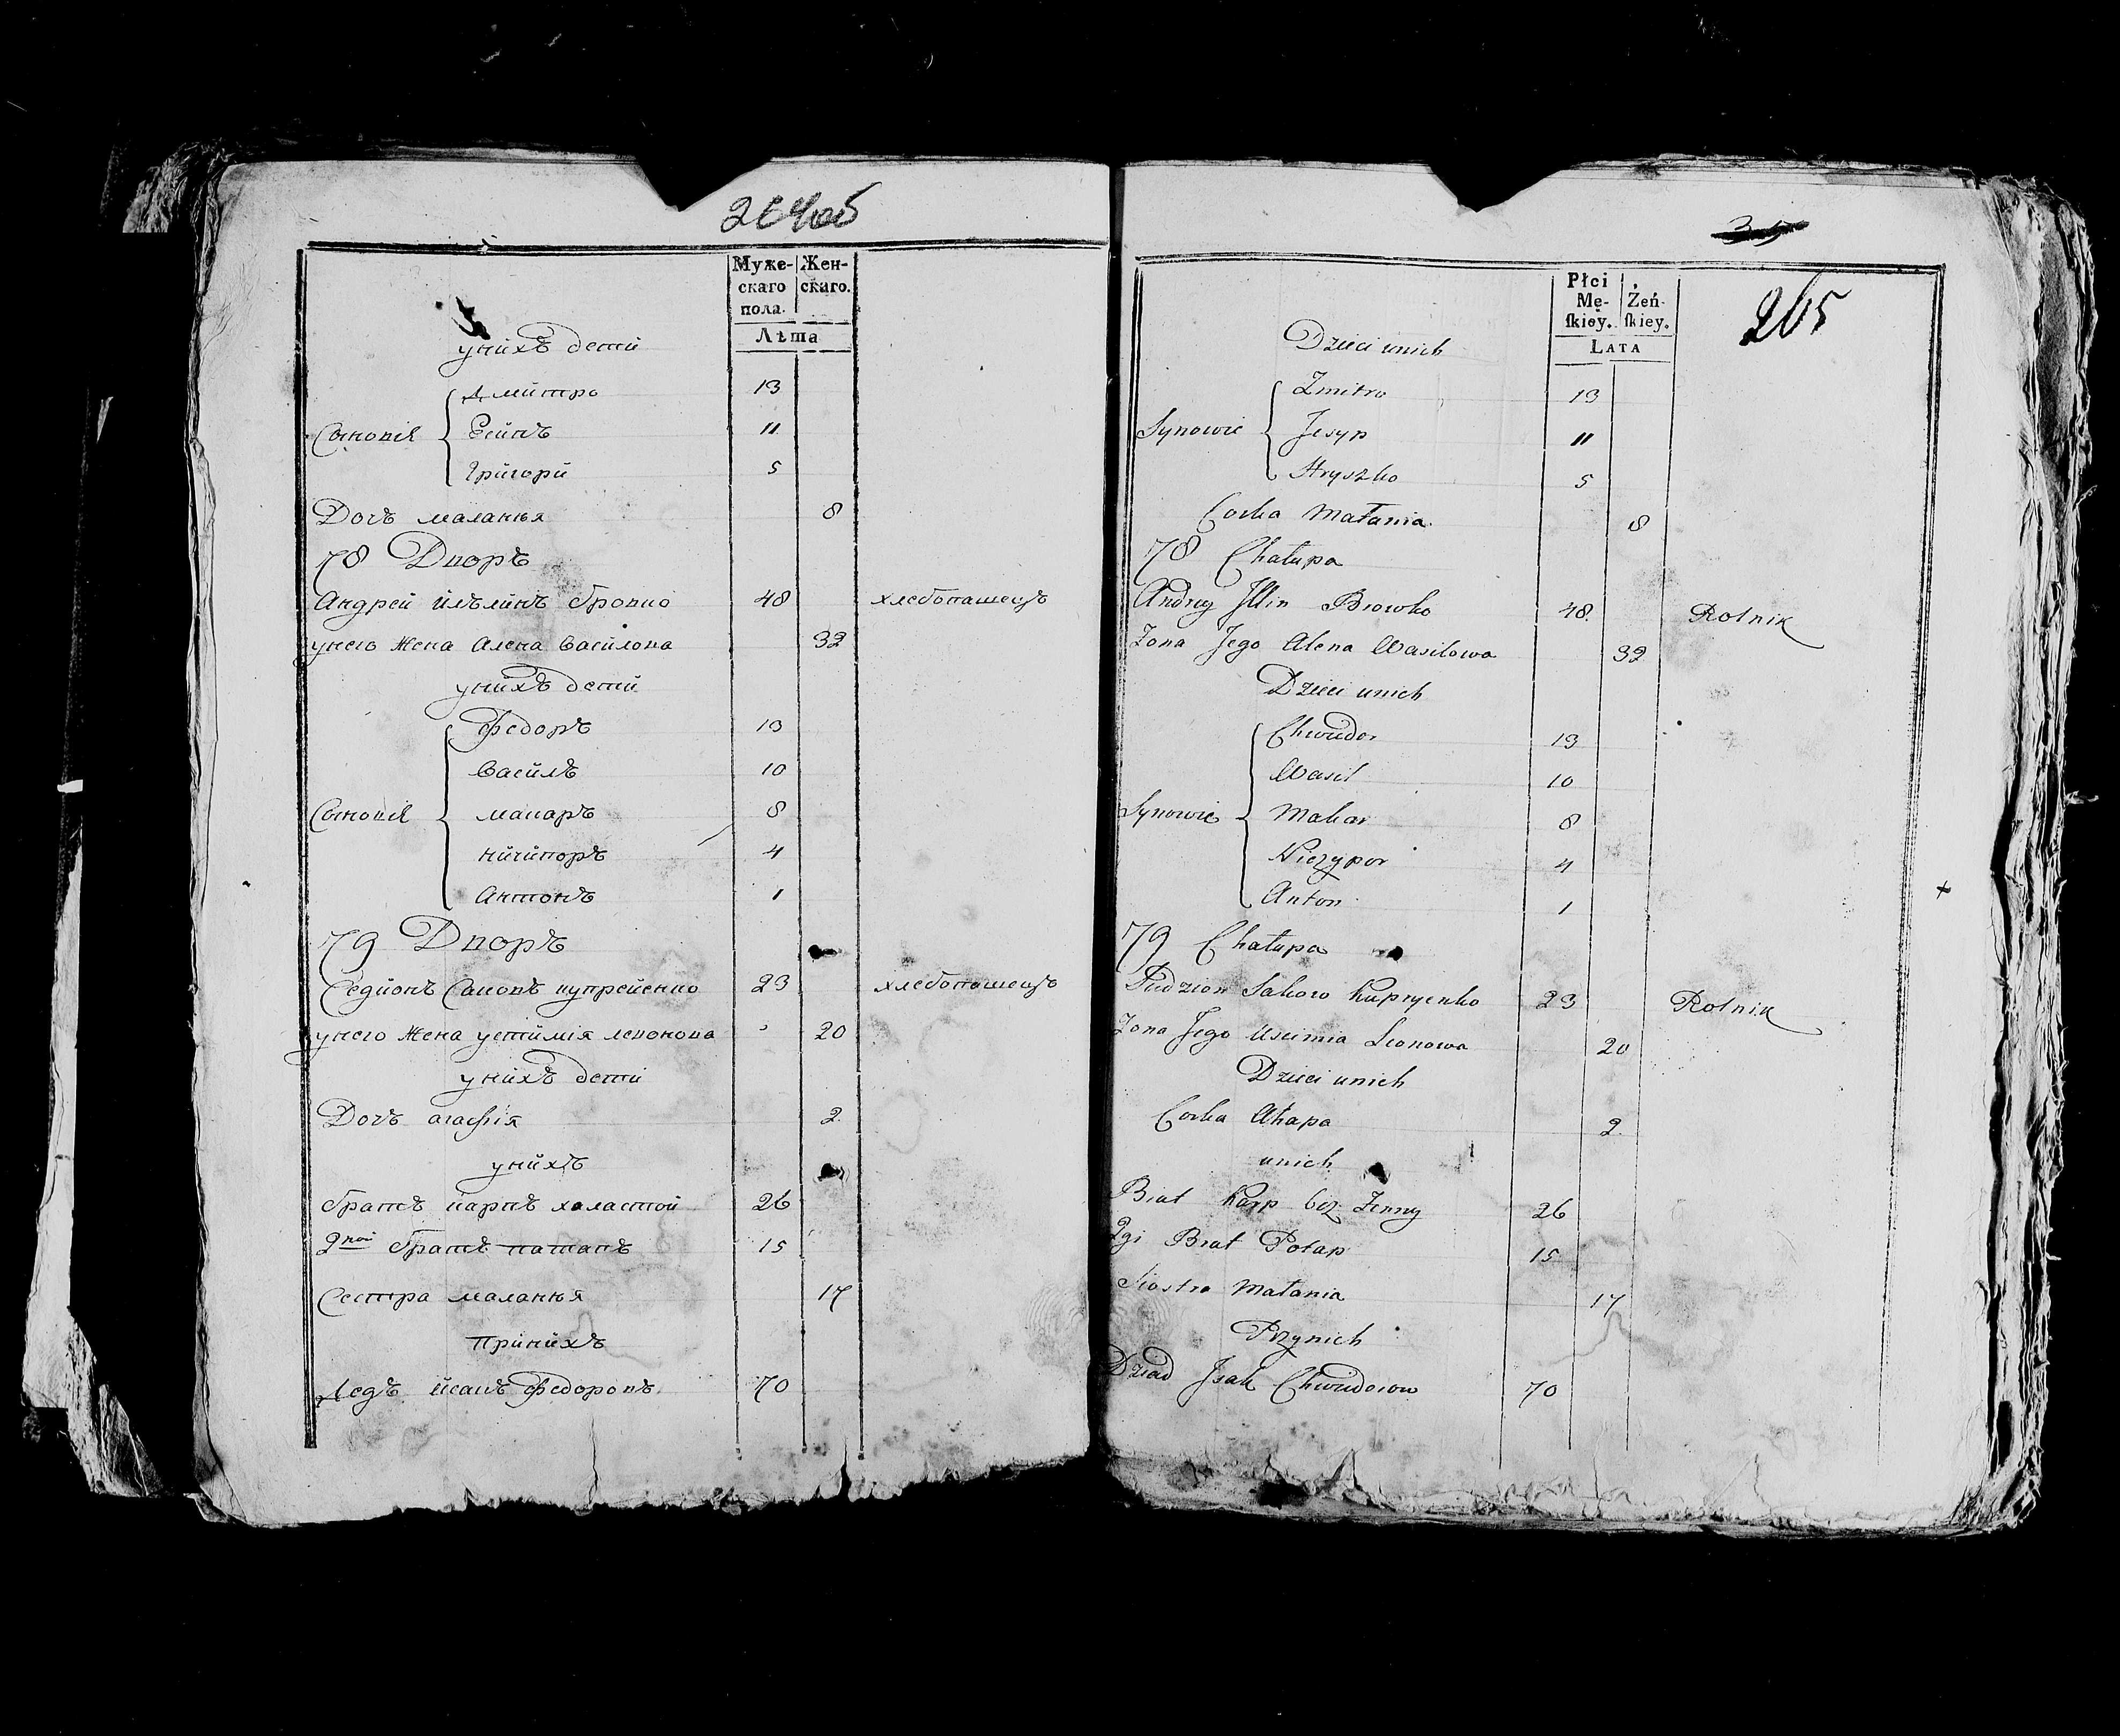 264об
Муже-скаго пола. Жен-скаго.
Лѣта
унихъ дети
Дмитро 13
Сыновія Есипъ 11
Григори 5
Дочъ маланья 8
78 Дворъ
Андрей Ильинъ бровко 48 хлебопашецъ
унего жена Алена Василова 32
унихъ дети
Федоръ 13
Василъ 10
Сыновія макаръ 8
ничипоръ 4
Антонъ 1
79 Дворъ
Саковъ купрейенко 23 хлебопашецъ
унего жена устимія левонова 20
унихъ дети
Дочъ агафія 2
унихъ
братъ карпъ холастой 26
2кой братъ патапъ 15
Сестра маланья 17
Принихъ
Дедъ исакъ Федоровъ 70
265
Płci Mę-skiey. Żeń-skiey.
LATA
Dzieci unich
Zmitro 13
Synowie Jesyp 11
Hryszko 5
Corka Małania 8
78 Chałupa
Andrey Illin Browko 48 Rolnik
Zona Jego Alena Wasilowa 32
Dzieci unich
Chwiedor 13
Wasil 10
Synowie Makar 8
Niczypor 4
Anton 1
79 Chałupa
Sakow Kupryenko 23 Rolnik
Zona Jego Uscimia Leonowa 20
Dzieci unich
Corka Ahapa 2
unich
Brat Karp bez Zenny 26
2gi Brat Potap 15
Siostra Małania 17
Przynich
Dziad Jsak Chwiedorow 70